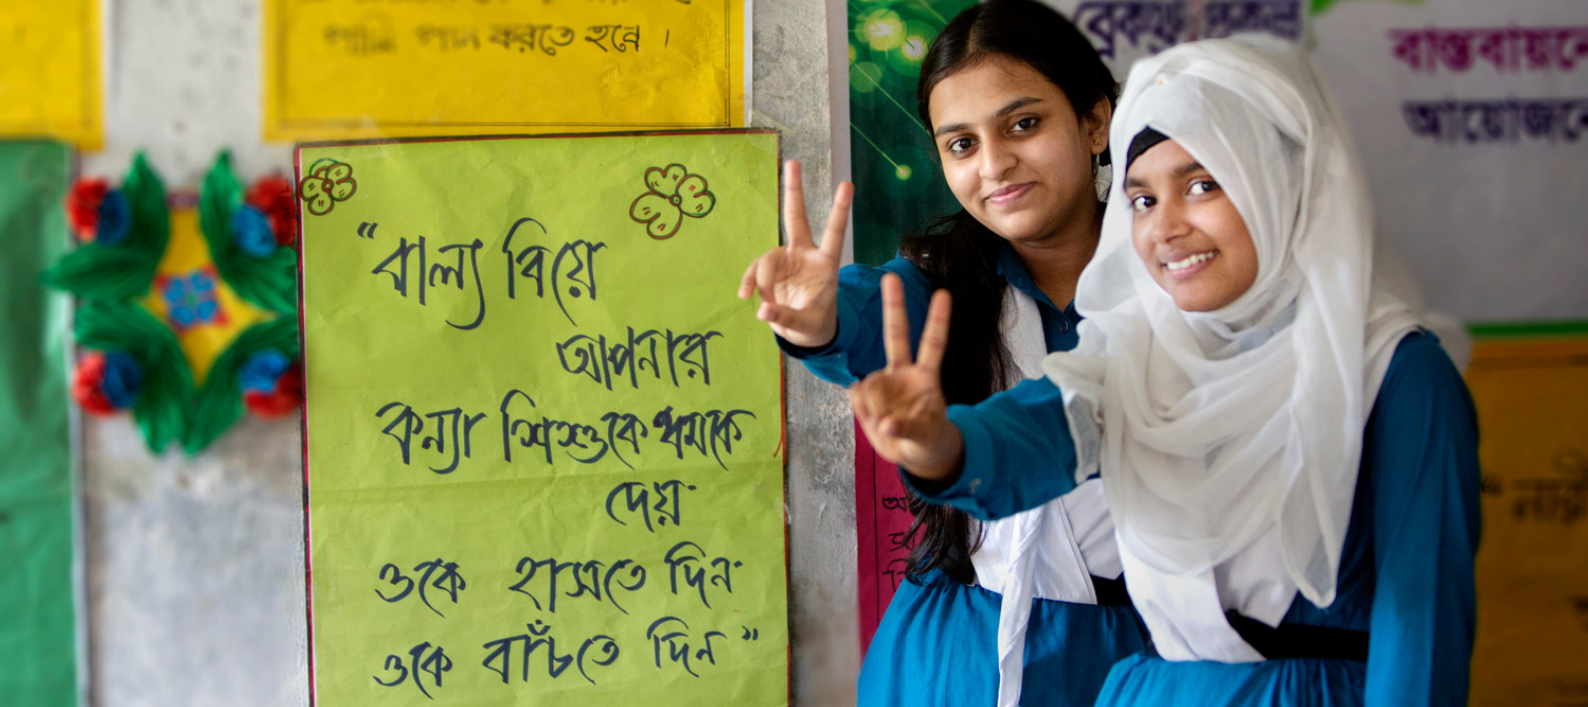 পানি পান করতে হবে ।
"বাল্য বিয়ে
আপনার
কন্যা শিশুকে থমকে
দেয়·
ওকে হাসতে দিন·
ওকে বাঁচতে দিন"
ব্রেকথ্রু
বাস্তবায়নে
আয়োজনে